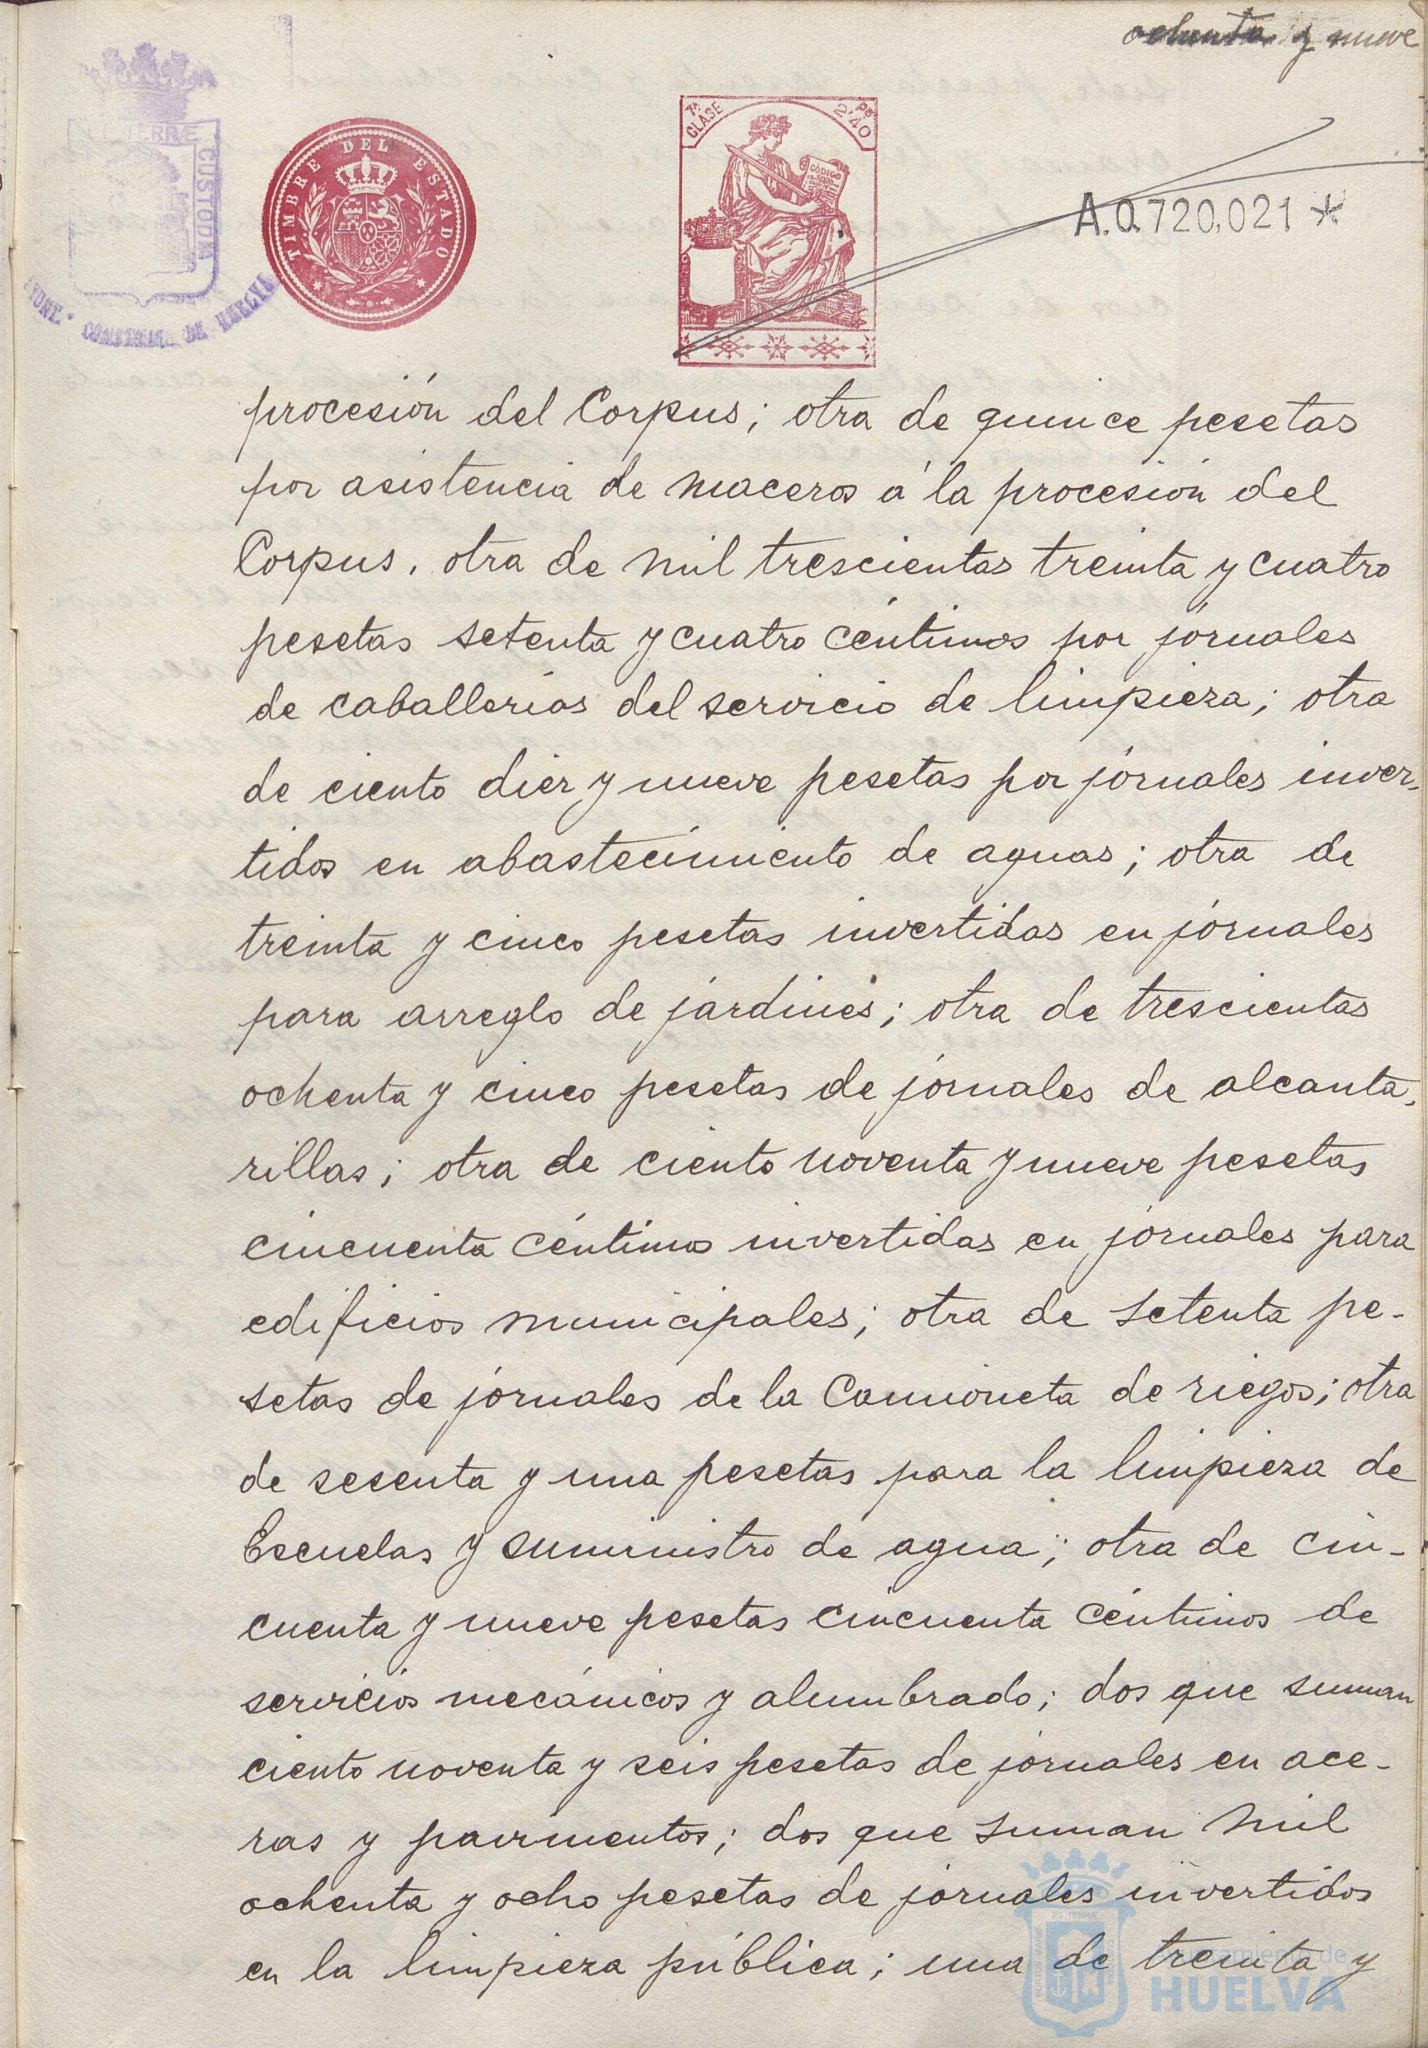 ochenta y nueve
TERRÆ
CUSTODIA
AYUNT. CONSTITNAL DE HUELVA
TIMBRE DEL ESTADO
7ª CLASE
2'40
CODIGO
A.0.720,021 *
procesión del Corpus; otra de quince pesetas
por asistencia de maceros á la procesión del
Corpus. otra de mil trescientas treinta y cuatro
pesetas setenta y cuatro céntimos por jornales
de caballerías del servicio de limpieza; otra
de ciento diez y nueve pesetas por jornales inver-
tidos en abastecimiento de aguas; otra de
treinta y cinco pesetas invertidas en jornales
para arreglo de jardines; otra de trescientas
ochenta y cinco pesetas de jornales de alcanta-
rillas; otra de ciento noventa y nueve pesetas
cincuenta céntimos invertidas en jornales para
edificios municipales; otra de setenta pe-
setas de jornales de la Camioneta de riegos; otra
de sesenta y una pesetas para la limpieza de
Escuelas y suministro de agua; otra de cin-
cuenta y nueve pesetas cincuenta céntimos de
servicios mecánicos y alumbrado; dos que suman
ciento noventa y seis pesetas de jornales en ace-
ras y pavimentos; dos que suman mil
ochenta y ocho pesetas de jornales invertidos
en la limpieza pública; una de treinta y
Ayuntamiento de
HUELVA